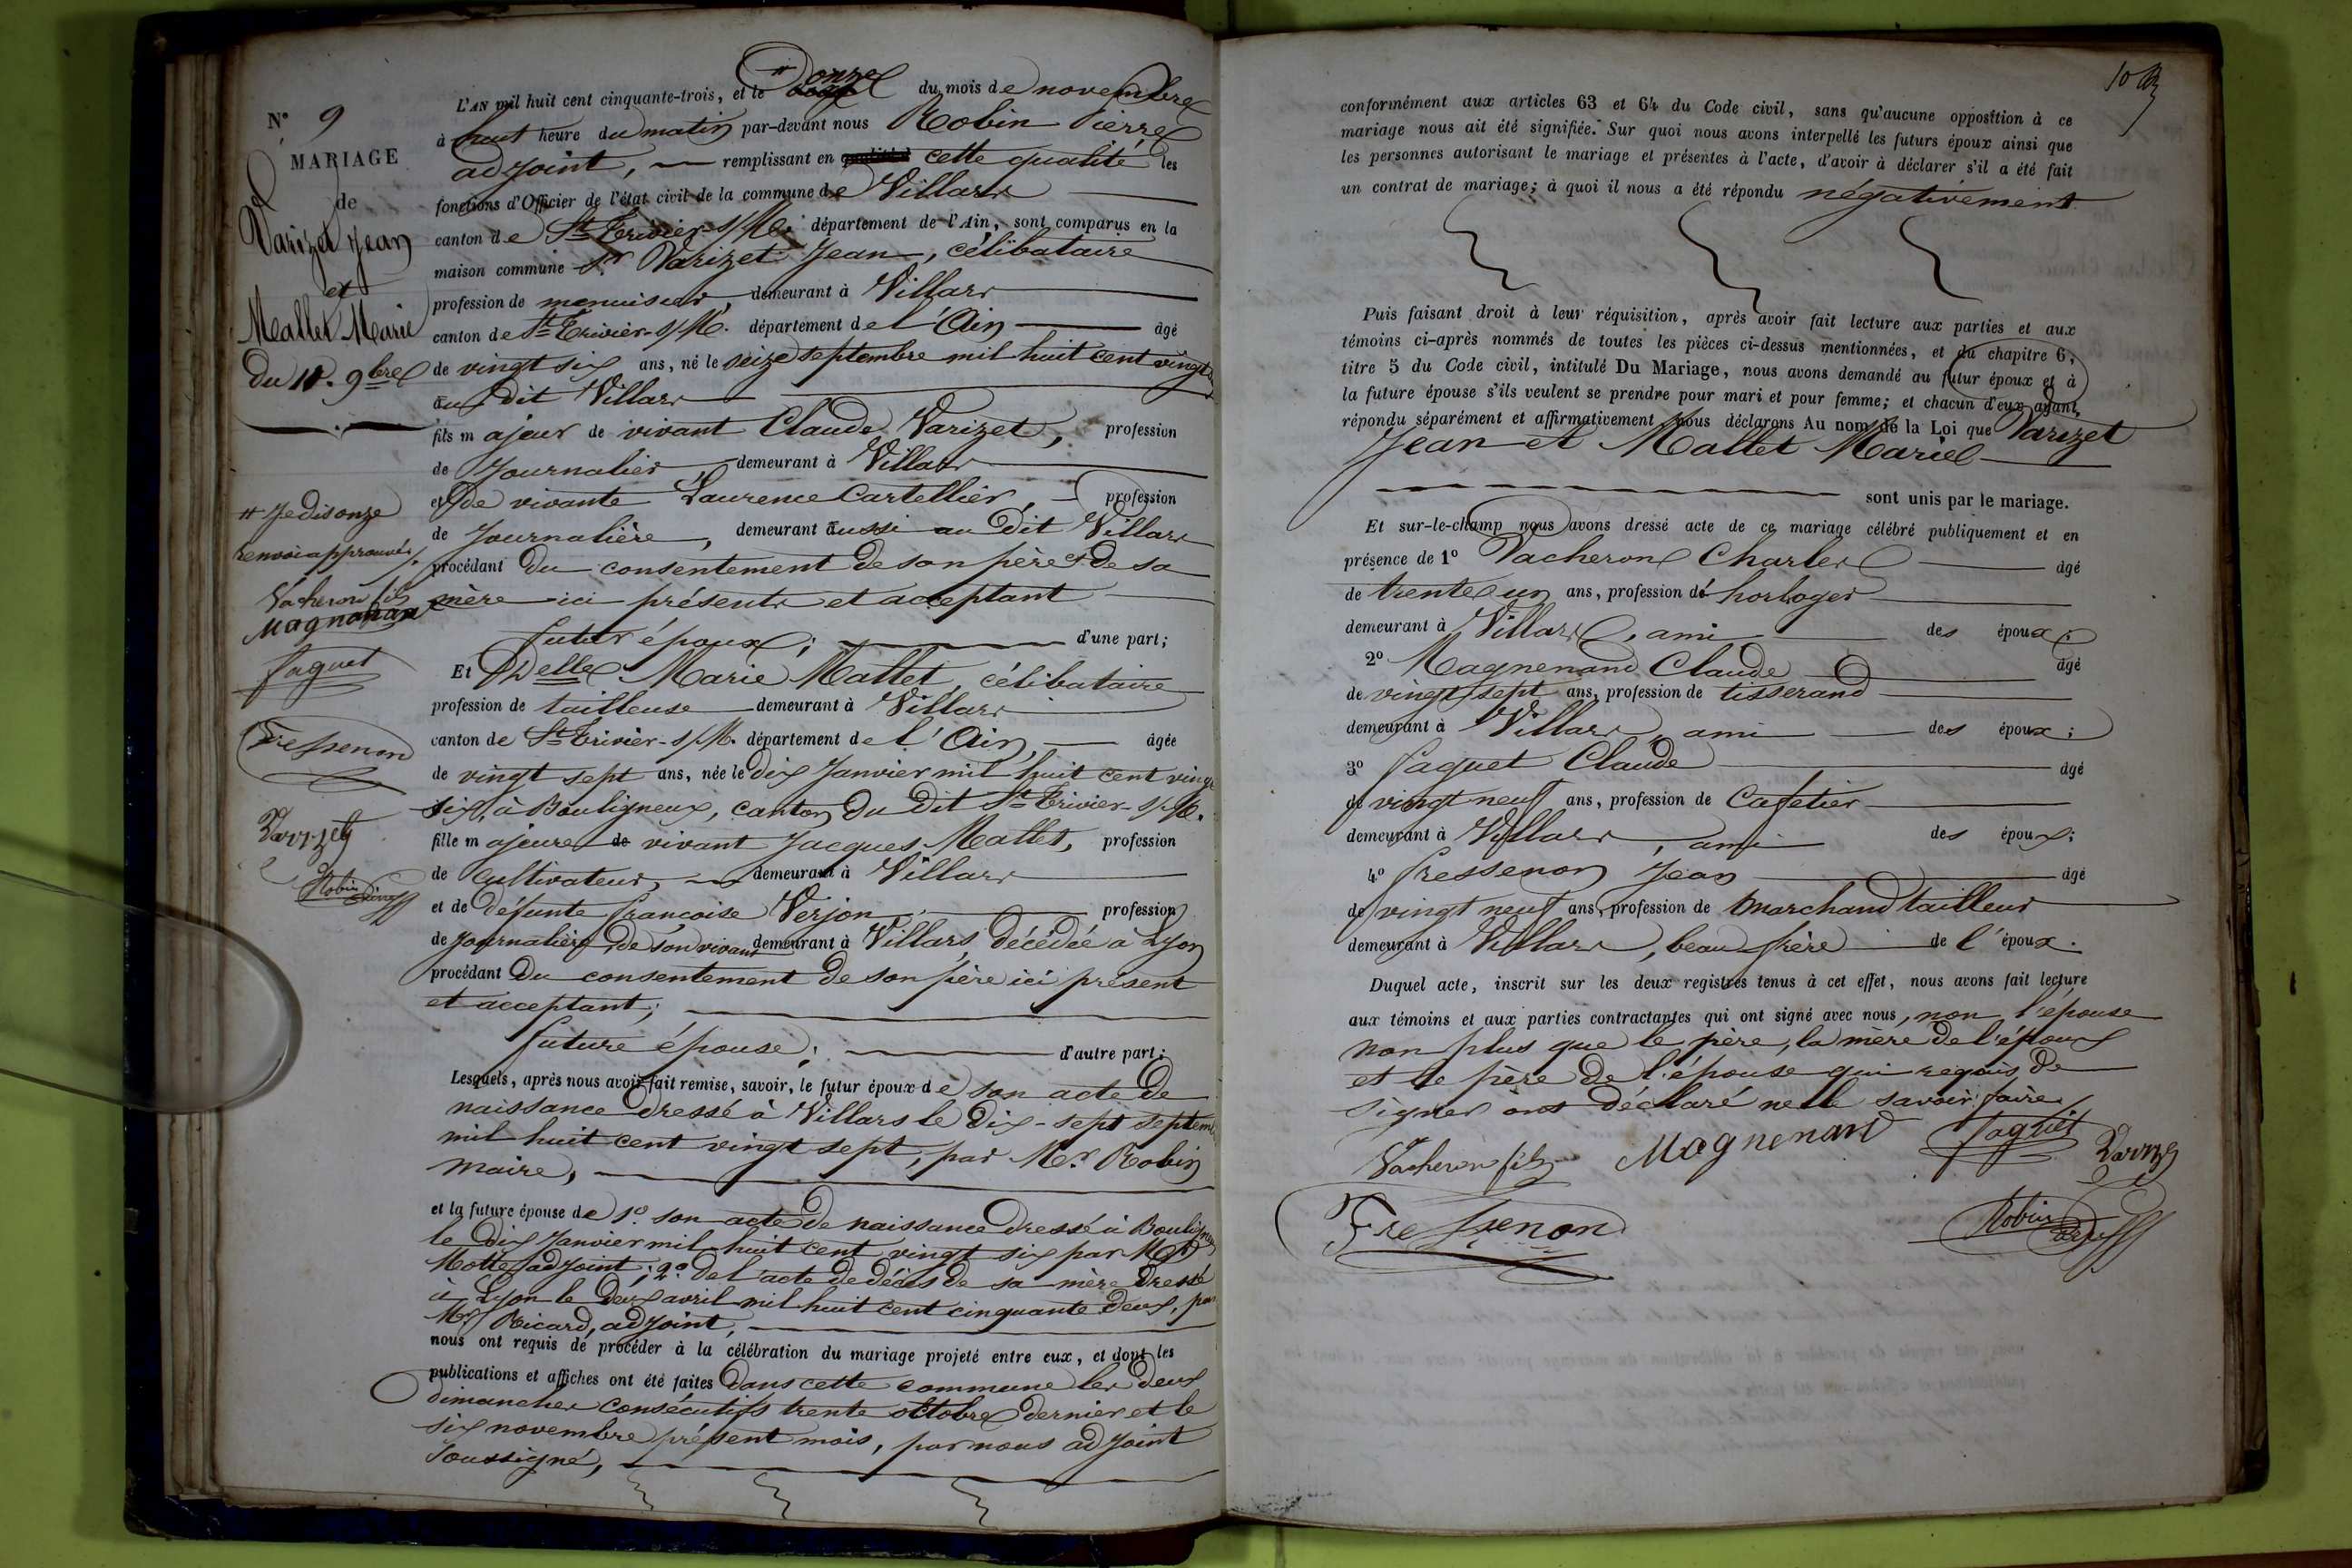 N° 9
MARIAGE
de
Varizet Jean
et
Mallet Marie
Du 11. 9bre
# Je dis onze
renvoi approuvé
Vacheron fils
Magnenan
Faguet
Fressenon
Varizet
Robin Pierre
L'AN mil huit cent cinquante-trois, et le # onze du mois de novembre
à huit heure du matin par-devant nous Robin Pierre
adjoint, — remplissant en cette qualité les
fonctions d'Officier de l'état civil de la commune de Villars
canton de St Trivier s/M. département de l'Ain, sont comparus en la
maison commune Sr Varizet Jean, célibataire
profession de menuisier, demeurant à Villars
canton de St Trivier-s/M. département de l'Ain — âgé
de vingt six ans, né le seize septembre mil huit cent vingt
au dit Villars
fils majeur de vivant Claude Varizet, profession
de Journalier demeurant à Villars
et de vivante Laurence Cartellier, profession
de Journalière, demeurant aussi au dit Villars
procédant du consentement de son père et de sa
mère ici présents et acceptant
futur époux; — d'une part;
Et Delle Marie Mallet, célibataire
profession de tailleuse demeurant à Villars
canton de St Trivier-s/M. département de l'Ain, — âgée
de vingt sept ans, née le dix Janvier mil huit cent vingt
six, à Bouligneux, canton du dit St Trivier-s/M.
fille majeure de vivant Jacques Mallet, profession
de cultivateur, — demeurant à Villars
et de défunte françoise Verjon — profession
de journalière de son vivant demeurant à Villars, décédée à Lyon
procédant du consentement de son père ici présent
et acceptant;
future épouse; — d'autre part;
Lesquels, après nous avoir fait remise, savoir, le futur époux de son acte de
naissance dressé à Villars le dix-sept septem
mil huit cent vingt sept, par Mr. Robin
maire,
et la future épouse de 1° son acte de naissance dressé à Bouligneux
le dix Janvier mil huit cent vingt six par Mr
Motte adjoint; 2° de l'acte de décès de sa mère dressé
à Lyon le deux avril mil huit cent cinquante deux, par
Mr Ricard, adjoint,
nous ont requis de procéder à la célébration du mariage projeté entre eux, et dont les
publications et affiches ont été faites dans cette commune les deux
dimanches consécutifs trente octobre dernier et le
six novembre présent mois, par nous adjoint
soussigné,
10
conformément aux articles 63 et 64 du Code civil, sans qu'aucune opposition à ce
mariage nous ait été signifiée. Sur quoi nous avons interpellé les futurs époux ainsi que
les personnes autorisant le mariage et présentes à l'acte, d'avoir à déclarer s'il a été fait
un contrat de mariage; à quoi il nous a été répondu négativement
Puis faisant droit à leur réquisition, après avoir fait lecture aux parties et aux
témoins ci-après nommés de toutes les pièces ci-dessus mentionnées, et du chapitre 6,
titre 5 du Code civil, intitulé Du Mariage, nous avons demandé au futur époux et à
la future épouse s'ils veulent se prendre pour mari et pour femme; et chacun d'eux ayant
répondu séparément et affirmativement nous déclarons Au nom de la Loi que Varizet
Jean et Mallet Marie
sont unis par le mariage.
Et sur-le-champ nous avons dressé acte de ce mariage célébré publiquement et en
présence de 1° Vacheron Charles — âgé
de trente un ans, profession d'horloger
demeurant à Villars, ami — des époux;
2° Magnenand Claude — âgé
de vingt sept ans, profession de tisserand
demeurant à Villars, ami — des époux;
3° Faguet Claude — âgé
de vingt neuf ans, profession de Cafetier
demeurant à Villars, ami — des époux;
4° Fressenon Jean — âgé
de vingt neuf ans, profession de marchand tailleur
demeurant à Villars, beau frère — de l'époux.
Duquel acte, inscrit sur les deux registres tenus à cet effet, nous avons fait lecture
aux témoins et aux parties contractantes qui ont signé avec nous, non l'épouse
non plus que le père, la mère de l'époux
et le père de l'épouse qui requis de
signer ont déclaré ne le savoir faire
Vacheron fils Magnenand Faguet Varizet
Fressenon Robin Pierre